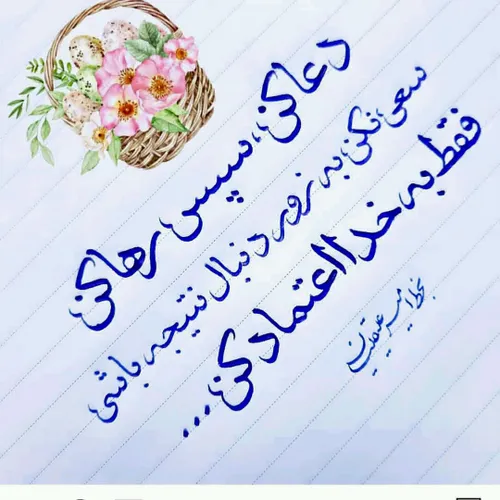 دعا کن، سپس رها کن
سعی نکن به زور دنبال نتیجه باشی
فقط به خدا اعتماد کن...
بخط امیر